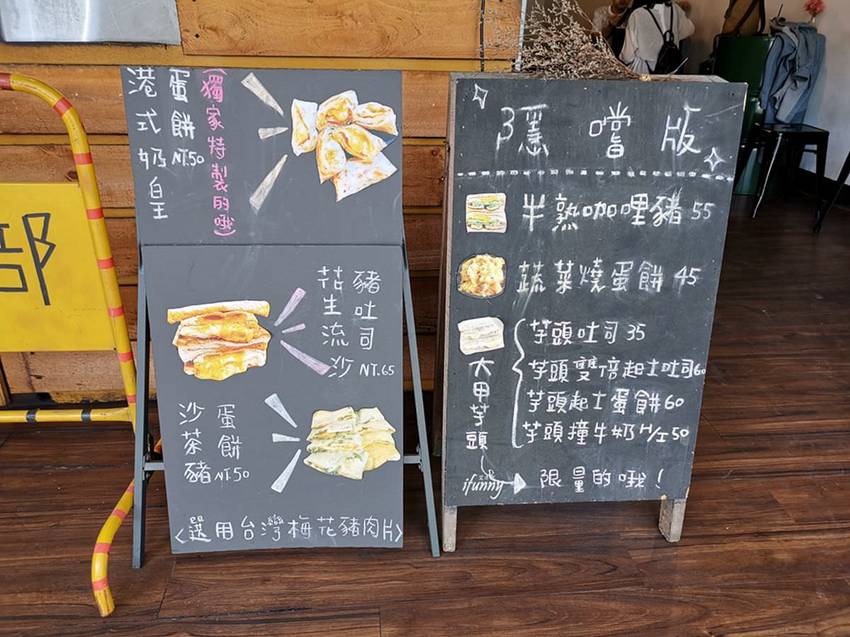 部
(獨家特製的哦)
蛋餅NT.50
港式奶皇
豬吐司NT.65
花生流沙
蛋餅NT.50
沙茶豬
<選用台灣梅花豬肉片>
隱嚐版
半熟咖哩豬 55
蔬菜燒蛋餅 45
大甲芋頭
芋頭吐司 35
芋頭雙倍起士吐司60
芋頭起士蛋餅60
芋頭撞牛奶H/I50
ifunny
限量的哦!